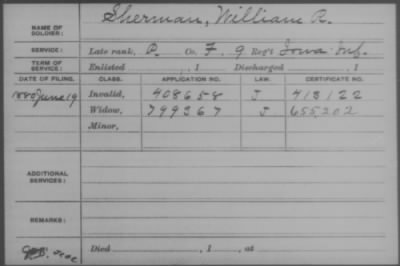 NAME OF SOLDIER: Sherman, William R.
SERVICE: Late rank, P. Co. F. 9 Reg't Iowa Inf.
TERM OF SERVICE: Enlisted , 1 Discharged , 1
DATE OF FILING. CLASS. APPLICATION NO. LAW. CERTIFICATE NO.
1880 June 19 Invalid, 408658 J 413122
Widow, 799367 J 655,202
Minor,
ADDITIONAL SERVICES:
REMARKS:
Died , 1 , at